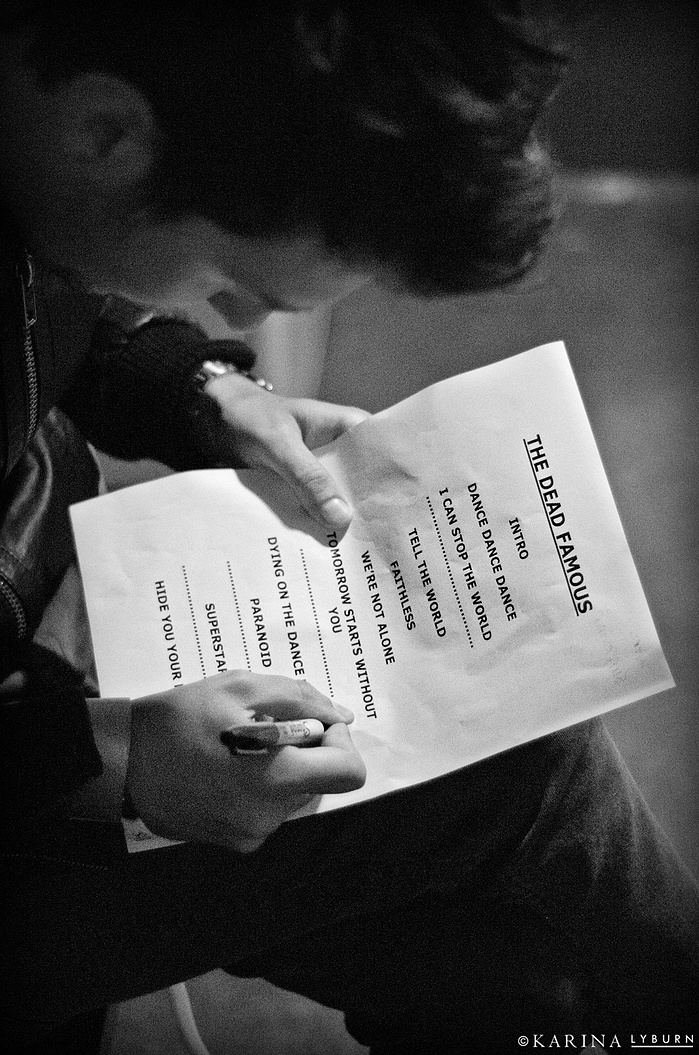 THE DEAD FAMOUS
INTRO
DANCE DANCE DANCE
I CAN STOP THE WORLD
TELL THE WORLD
FAITHLESS
WE'RE NOT ALONE
TOMORROW STARTS WITHOUT
YOU
DYING ON THE DANCE
PARANOID
HIDE YOU YOUR
©KARINA LYBURN